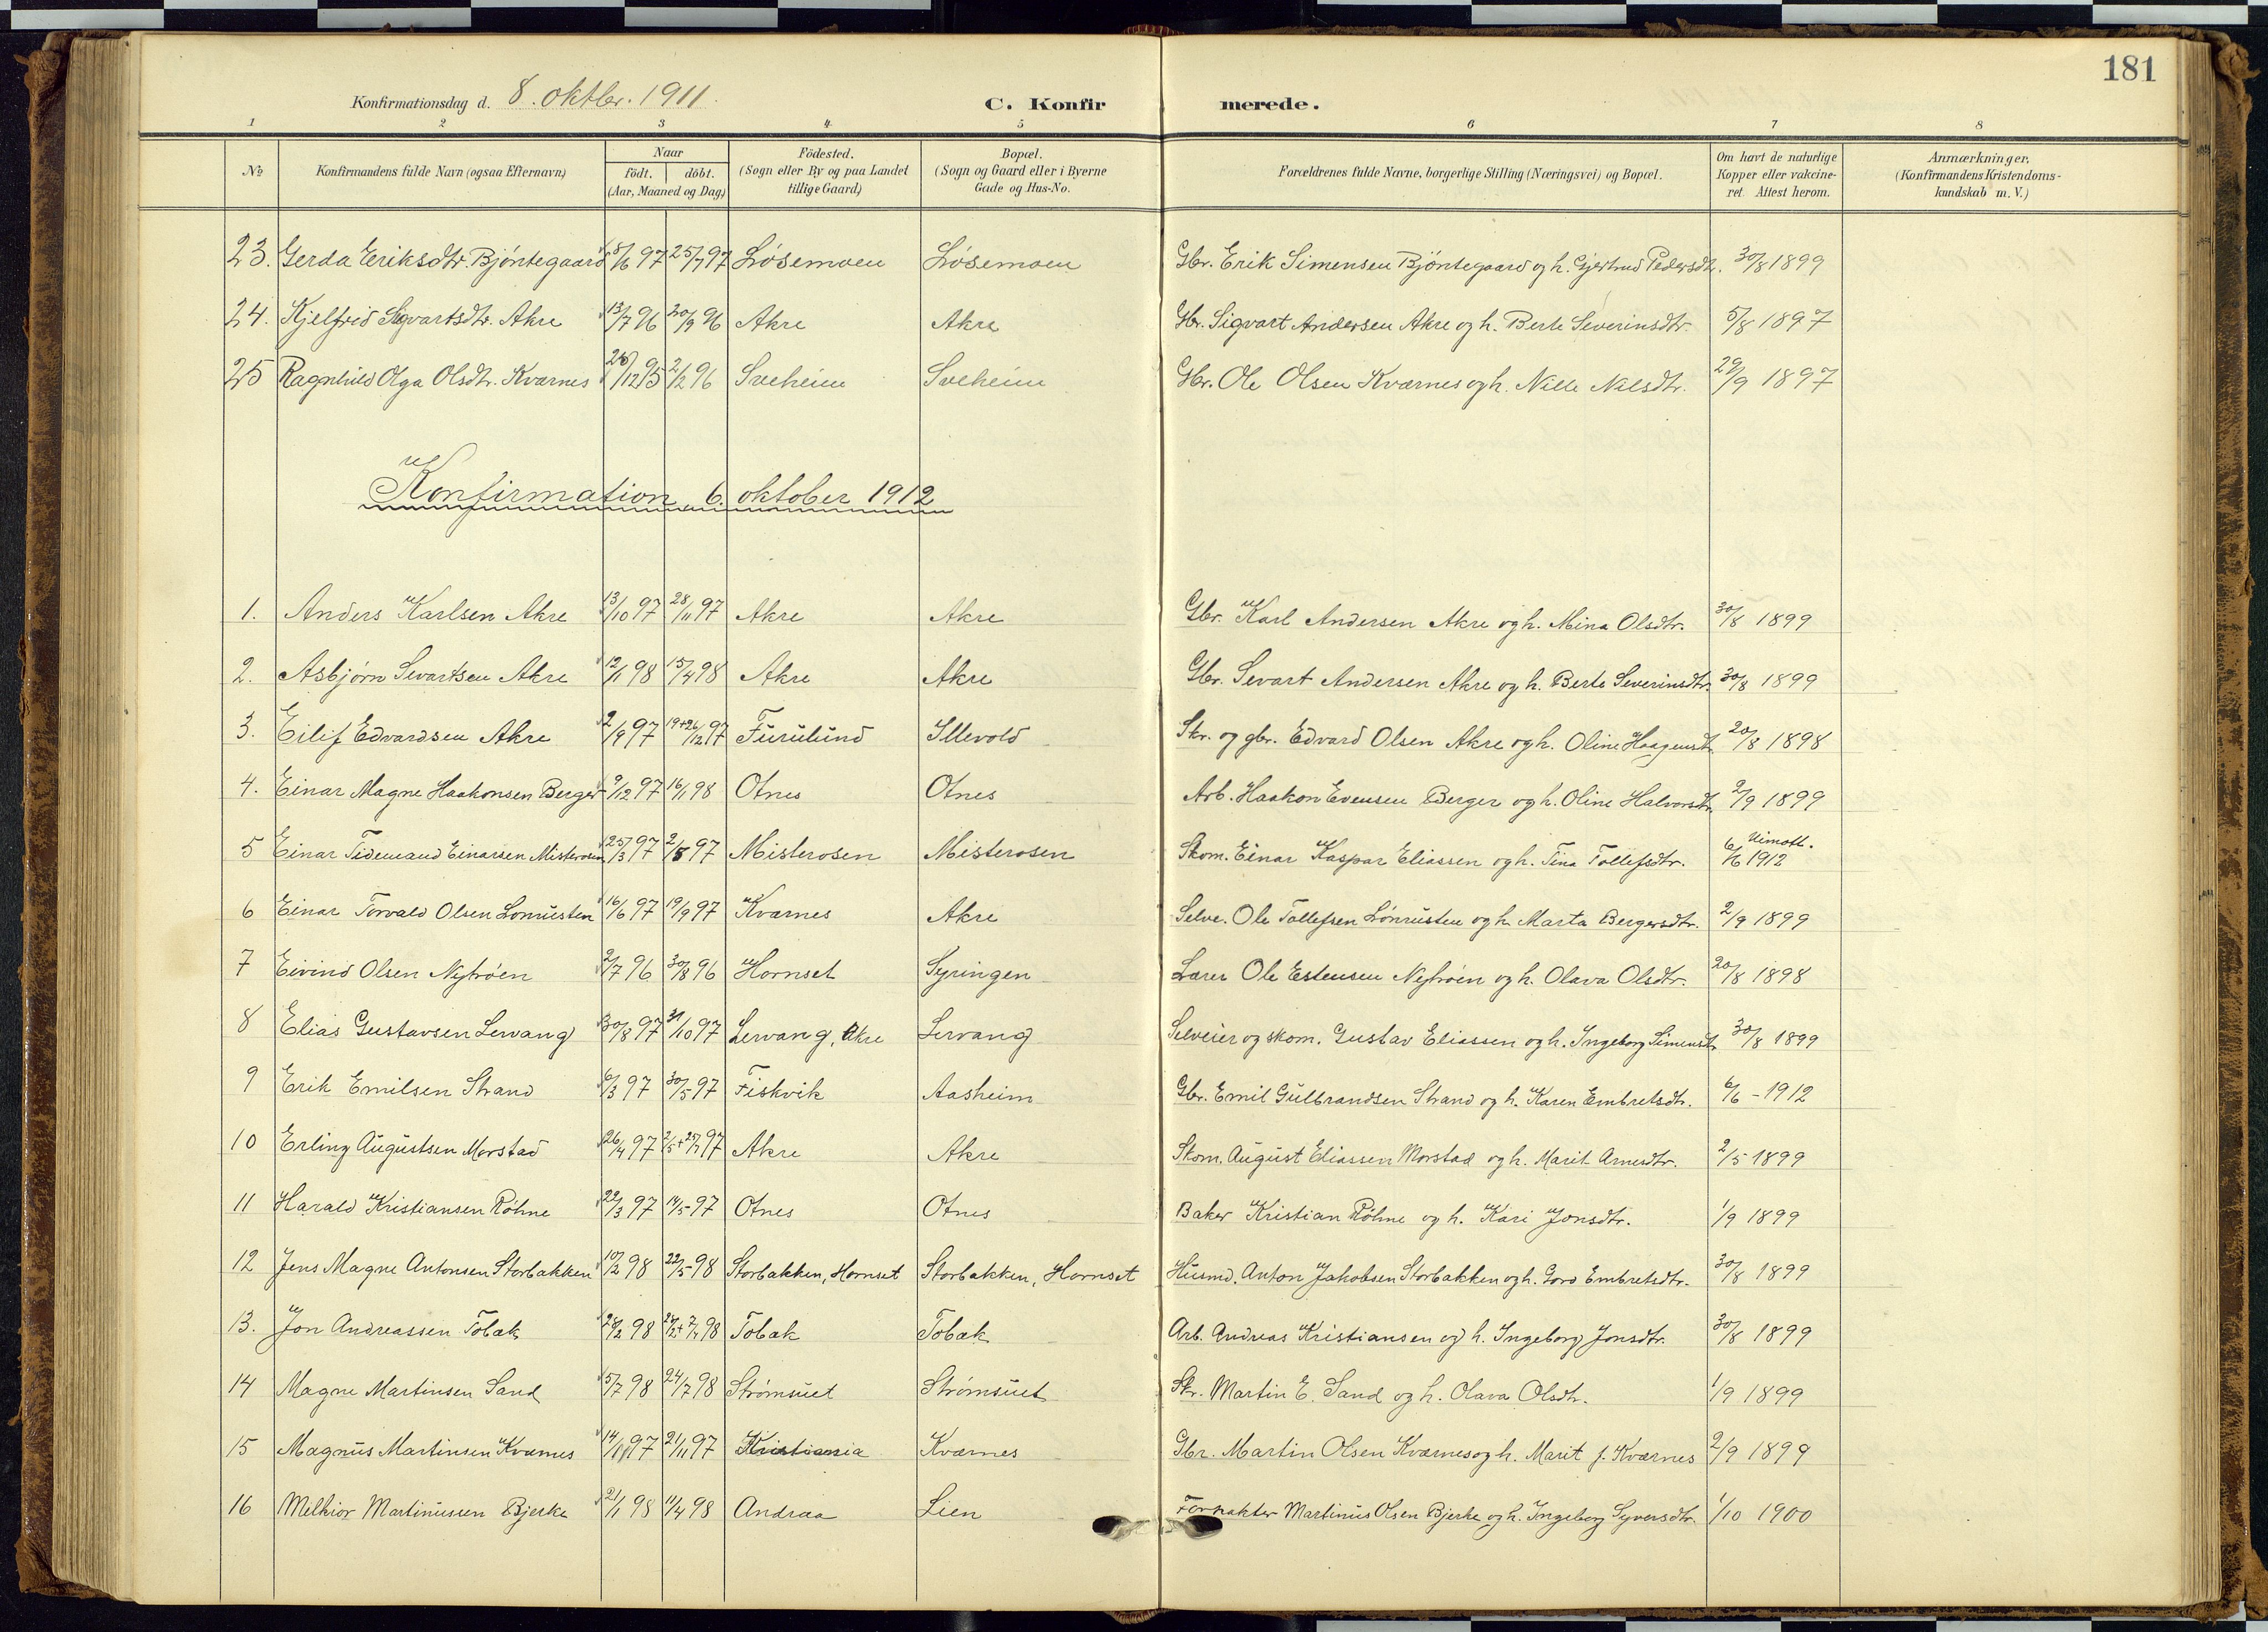 181
Konfirmationsdag d. 8. oktbr. 1911. C. Konfirmerede.
1 2 3 4 5 6 7 8
No Konfirmandens fulde Navn (ogsaa Efternavn) Naar födt. döbt. (Aar, Maaned og Dag) Födested. (Sogn eller By og paa Landet tillige Gaard) Bopæl. (Sogn og Gaard eller i Byerne Gade og Hus-No. Forældrenes fulde Navne, borgerlige Stilling (Næringsvei) og Bopæl. Om havt de naturlige Kopper eller vakcineret. Attest herom. Anmærkninger. (Konfirmandens Kristendomskundskab m. V.)
23. Gerda Eriksdtr. Bjöntegaard 8/6 97 25/7 97 Lösemoen Lösemoen Gbr. Erik Simensen Bjöntegaard og h. Gjertrud Pedersdtr. 30/8 1899
24. Kjelfrid Sigvartsdtr. Akre 13/7 96 20/9 96 Akre Akre Gbr. Sigvart Andersen Akre og h. Berte Severinsdtr. 5/8 1897
25 Ragnhild Olga Olsdtr. Kværnes 28/12 95 2/2 96 Sveheim Sveheim Gbr. Ole Olsen Kværnes og h. Nille Nilsdtr. 29/9 1897
Konfirmation 6. oktober 1912
1. Anders Karlsen Akre 13/10 97 28/11 97 Akre Akre Gbr. Karl Andersen Akre og h. Mina Olsdtr. 30/8 1899
2. Asbjørn Sevartsen Akre 12/1 98 15/4 98 Akre Akre Gbr. Sevart Andersen Akre og h. Berte Severinsdtr. 30/8 1899
3. Eilif Edvardsen Akre 2/9 97 19+26/12 97 Furulund Illevold Skr. og gbr. Edvard Olsen Akre og h. Oline Haagensdtr. 20/8 1898
4. Einar Magne Haakonsen Berger 9/12 97 16/1 98 Otnes Otnes Arb. Haakon Evensen Berger og h. Oline Halvorsdtr. 2/9 1899
5 Einar Tidemand Einarsen Misterosen 25/3 97 2/8 97 Misterosen Misterosen Skom. Einar Kaspar Eliassen og h. Tina Tollefsdtr. 6/6 1912
6 Einar Torvald Olsen Lonrusten 16/6 97 19/9 97 Kværnes Akre Selve. Ole Tollefsen Lönrusten og h. Marta Bergersdtr. 2/9 1899
7 Eivind Olsen Nytröen 2/7 96 30/8 96 Hornset Syringen Lærer Ole Estensen Nytröen og h. Olava Olsdtr. 20/8 1898
8 Elias Gustavsen Lervang 30/8 97 31/10 97 Lervang, Akre Lervang Selveier og skom. Gustav Eliassen og h. Ingeborg Simensdtr 30/8 1899
9 Erik Emilsen Strand 6/3 97 30/5 97 Fiskvik Aasheim Gbr. Emil Gulbrandsen Strand og h. Karen Embretsdtr. 6/6 - 1912
10 Erling Augustsen Morstad 26/4 97 2/5+25/7 97 Akre Akre Skom. August Eliassen Morstad og h. Marit Arnesdtr. 2/5 1899
11 Harald Kristiansen Röhne 22/3 97 14/5 97 Otnes Otnes Baker Kristian Röhne og h. Kari Jonsdtr. 1/9 1899
12 Jens Magne Antonsen Storbakken 10/2 98 22/5 98 Storbakken, Hornset Storbakken, Hornset Husmd. Anton Jakobsen Storbakken og h. Goro Embretsdtr. 30/8 1899
13. Jon Andreassen Tobak 2/2 98 98 Tobak Tobak Arb. Andreas Kristiansen og h. Ingeborg Jonsdtr. 30/8 1899
14 Magne Martinsen Sand 5/7 98 24/7 98 Strömsuet Strömsuet Skr. Martin E. Sand og h. Olava Olsdtr. 1/9 1899
15 Magnus Martinsen Kværnes 14/10 97 21/11 97 Kristiania Kværnes Gbr. Martin Olsen Kværnes og h. Marit f. Kværnes 2/9 1899
16 Melkior Martinussen Bjerke 21/1 98 11/4 98 Andraa Lien Forpakter Martinus Olsen Bjerke og h. Ingeborg Syversdtr. 1/10 1900